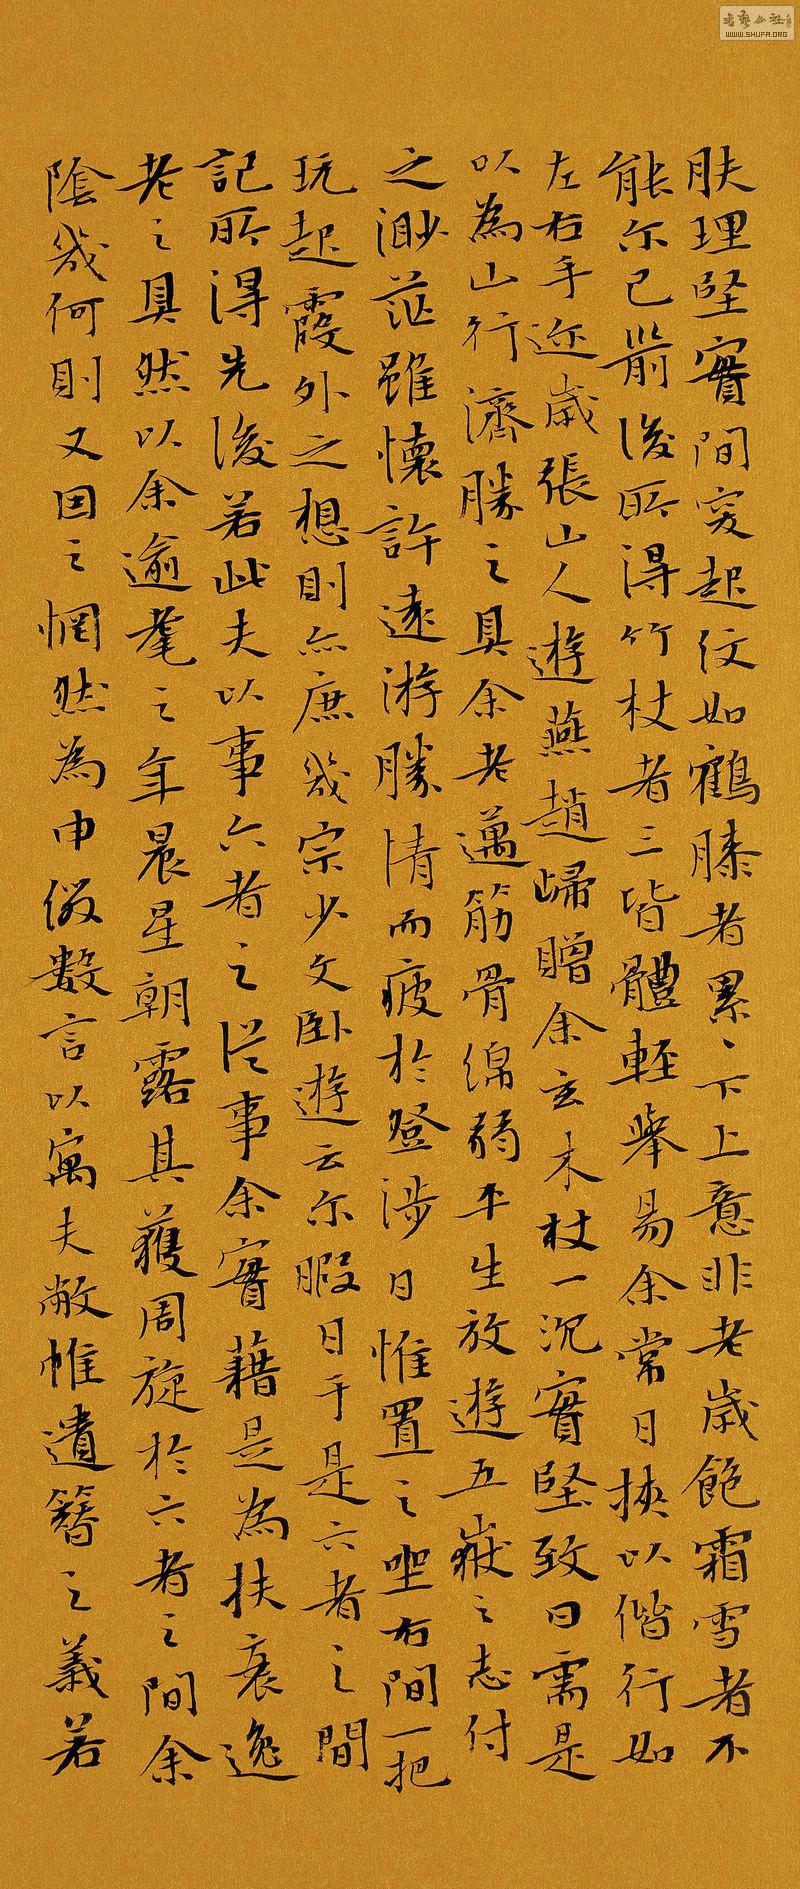 肤理坚實间突起纹如鶴膝者累々下上意非老歲飽霜雪者不
能尔已前後所得竹杖者三皆體軽举易余常日挟以偕行如
左右手近歲張山人遊燕趙歸贈余玄木杖一沉實堅致曰需是
以為山行濟勝之具余老邁筋骨绵弱平生放遊五嶽之志付
之渺茫雖懷許遠游勝情而疲於登涉日惟置之坐右间一把
玩起霞外之想則亦庶幾宗少文卧遊云尔暇日于是六者之間
記所得先後若此夫以事六者之従事余實藉是為扶衰逸
老之具然以余逾耄之年晨星朝露其獲周旋於六者之间余
陰幾何則又因之惘然為申儆數言以寓夫敝帷遺簪之義若
WWW.SHUFA.ORG